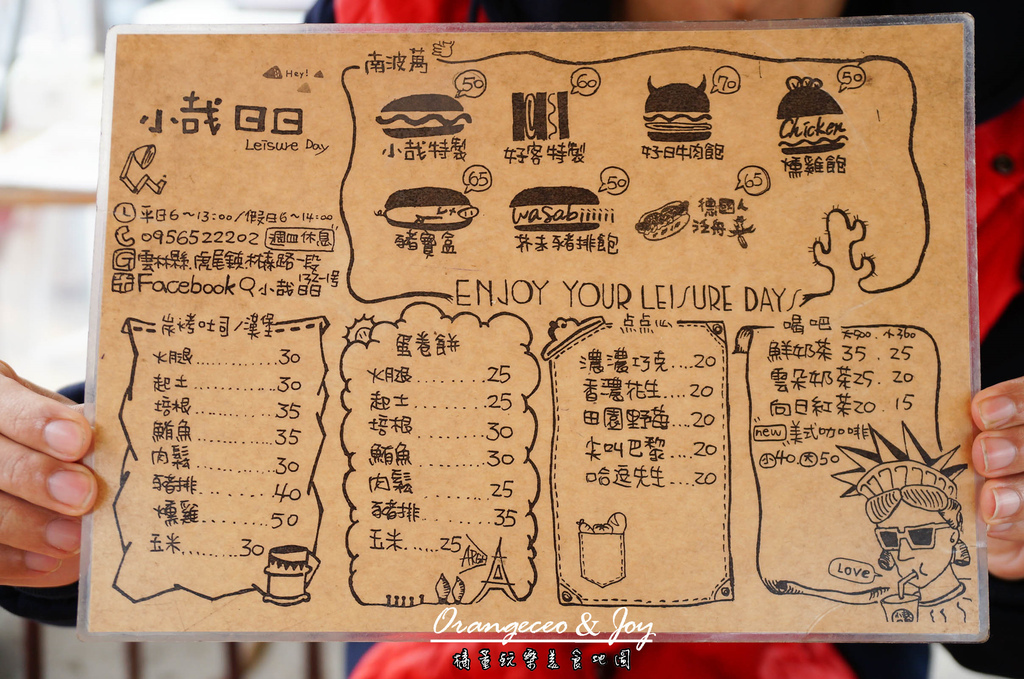 Hey!
小哉日日
Leisure Day
平日6～13:00/假日6～14:00
0956522202 週四休息
雲林縣.虎尾鎮.林森路一段
132-1號
Facebook 小哉日日
南波萬
50
小哉特製
60
好客特製
70
好日牛肉飽
50
Chicken
燻雞飽
65
豬寶盒
50
wasabiiiiii
芥末豬排飽
65
德國人
泛舟
ENJOY YOUR LEISURE DAYS
炭烤吐司/漢堡
火腿..........30
起士..........30
培根..........35
鮪魚..........35
肉鬆..........30
豬排..........40
燻雞..........50
玉米..........30
蛋卷餅
火腿..........25
起士..........25
培根..........30
鮪魚..........30
肉鬆..........25
豬排..........35
玉米......25
點點心
濃濃巧克....20
香濃花生....20
田園野莓....20
尖叫巴黎....20
哈逗先生....20
喝吧
大700. 小360
鮮奶茶 35 . 25
雲朵奶茶25 . 20
向日紅茶20 . 15
new 美式咖啡
小40 大50
LOVE
Orangeceo & Joy
橘董玩樂美食地圖